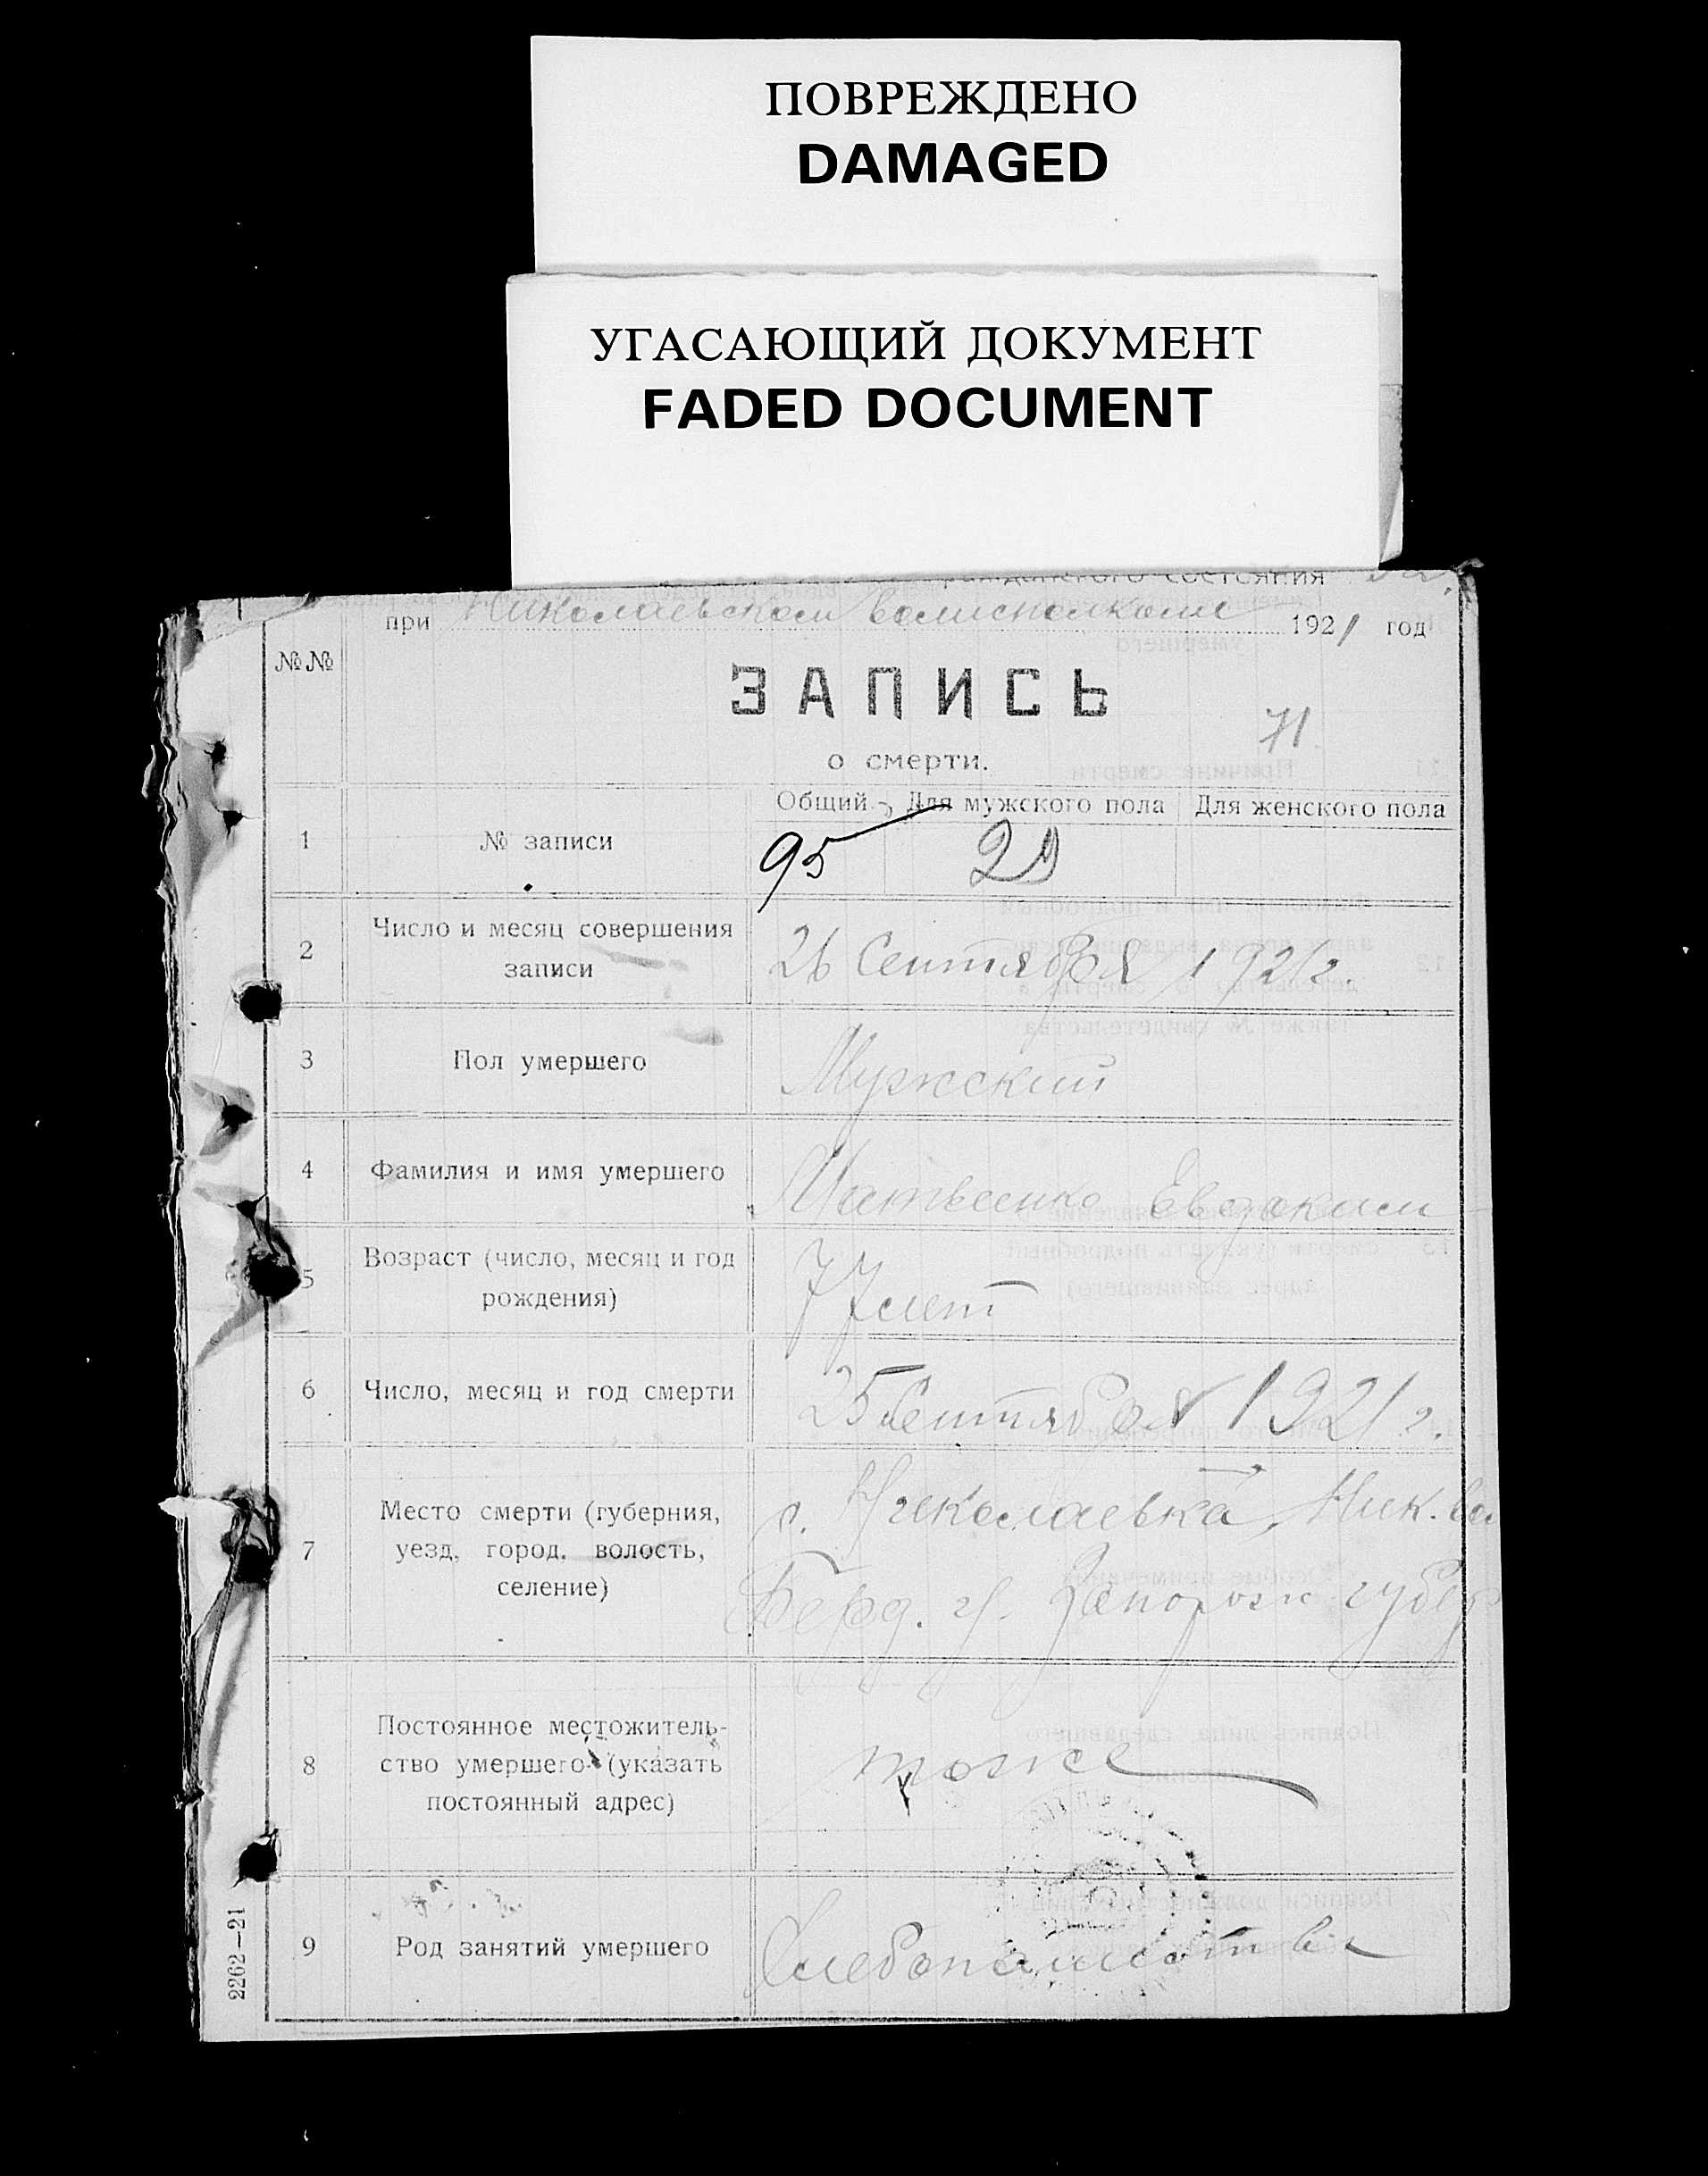 ПОВРЕЖДЕНО
DAMAGED
УГАСАЮЩИЙ ДОКУМЕНТ
FADED DOCUMENT
состояния
при Николаевском волисполкоме 1921 год
№№
ЗАПИСЬ
71
о смерти.
Общий Для мужского пола Для женского пола
1 № записи 95 29
2 Число и месяц совершения
записи 26 Сентября 1921 г.
3 Пол умершего Мужский
4 Фамилия и имя умершего Матвеенко Евдоким
5 Возраст (число, месяц и год
рождения) 77 лет
6 Число, месяц и год смерти 25 Сентября 1921 г.
7 Место смерти (губерния,
уезд, город, волость,
селение)
с. Николаевка, Ник. во
Берд. у. Запорож губер
8 Постоянное местожитель-
ство умершего (указать
постоянный адрес)
тоже
9 Род занятий умершего Хлебопашество
2262—21